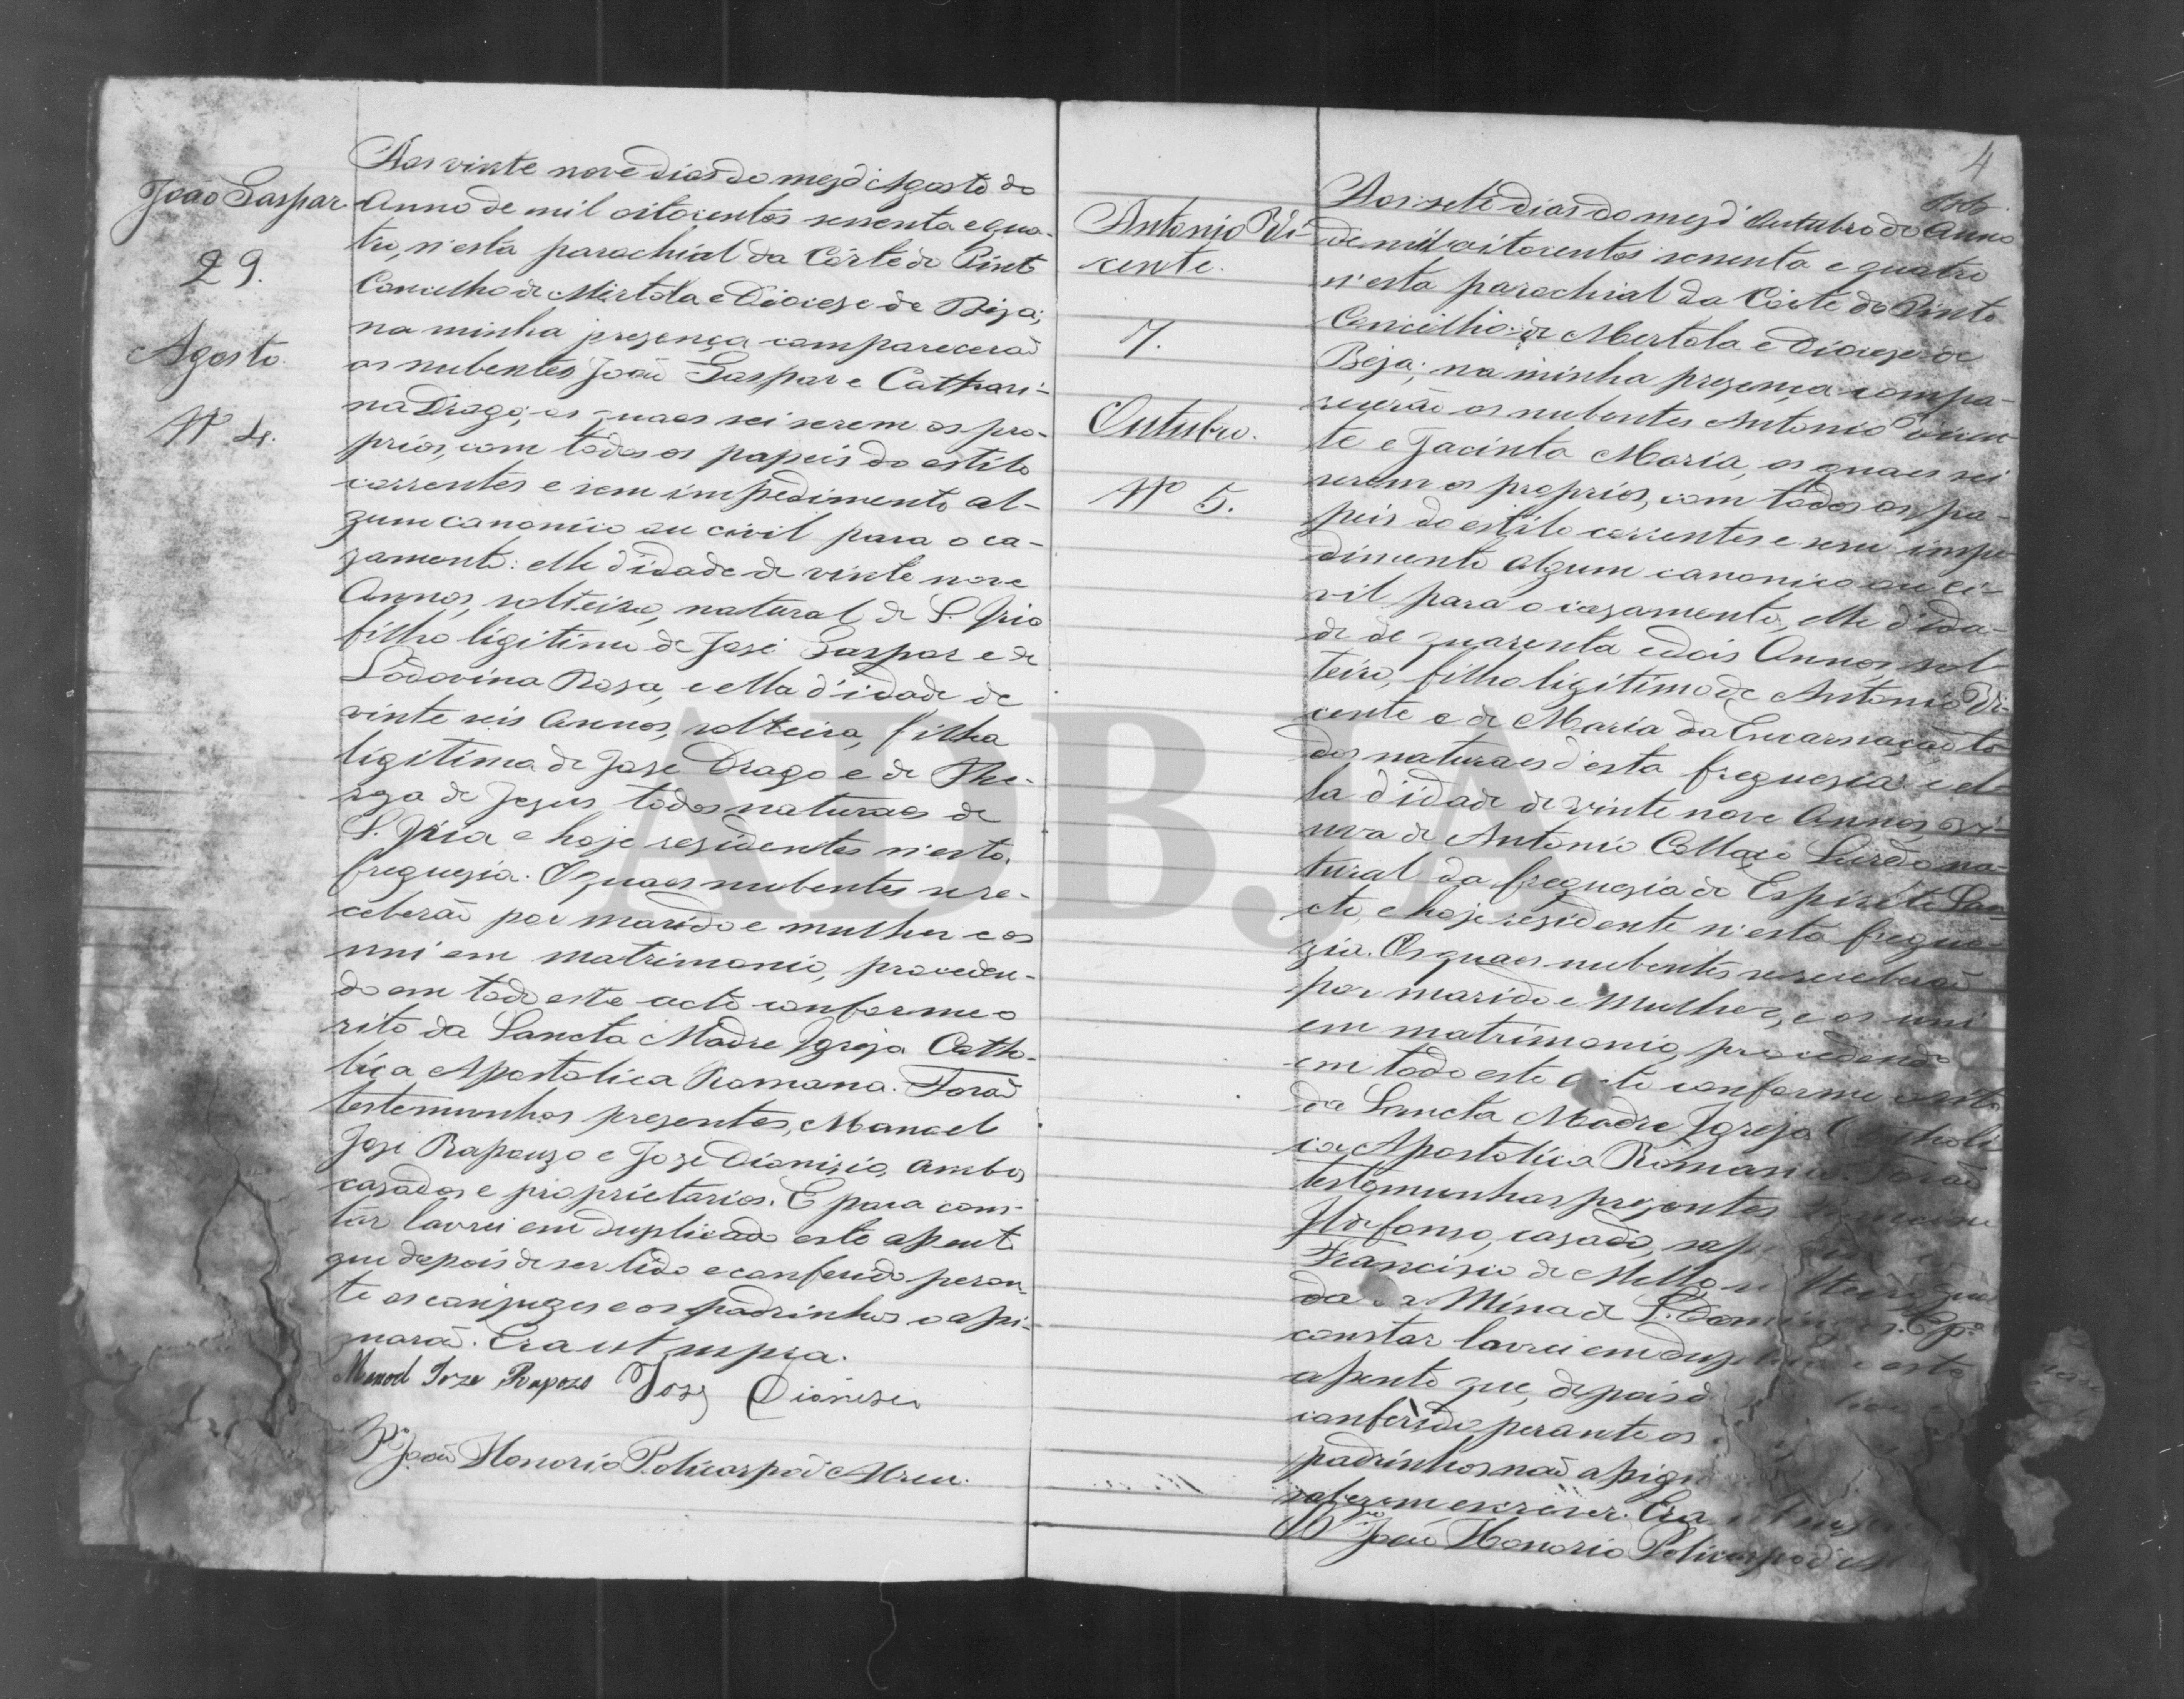 João Gaspar.
29.
Agosto.
Nº 4.
Aos vinte nove dias do mez d'Agosto do
Anno de mil oitocentos sessenta e qua-
tro, n'esta parochial da Côrte do Pinto
Concelho de Mertola e Diocese de Beja;
na minha presença comparecerão
os nubentes João Gaspar e Cathari-
na Drago, os quaes sei serem os pro-
prios, com todos os papeis do estilo
correntes e sem impedimento al-
gum canonico ou civil para o ca-
zamento: elle d'idade de vinte nove
Annos, solteiro, natural de S. Iria
filho ligitimo de José Gaspar e de
Lodovina Rosa, e ella d'idade de
vinte seis Annos, solteira, filha
ligitima de José Drago e de The-
reza de Jezus todos naturaes de
S. Iria e hoje residentes n'esta
freguezia. Os quaes nubentes se re-
ceberão por marido e mulher e os
uni em matrimonio, proceden-
do em todo este acto conforme o
rito da Sancta Madre Igreja Catho-
lica Apostolica Romana. Forão
testemunhas prezentes, Manoel
José Rapouzo e José Dionizio, ambos
casados e proprietarios. E para cons-
tar lavrei em duplicado este assento
que depois de ser lido e conferido peran-
te os conjuges e os padrinhos o assi-
gnarão. Era ut supra.
Manoel Joze Rapozo Joze Dionizio
Pe João Honorio Policarpo d'Abreu.
4
Antonio Vi-
cente.
7.
Outubro.
Nº 5.
Aos sete dias do mez d'Outubro do Anno
de mil oitocentos sessenta e quatro
n'esta parochial da Côrte do Pinto
Concelho de Mertola e Diocese de
Beja; na minha prezença compa-
recerão os nubentes Antonio Vicen-
te e Jacinta Maria, os quaes sei
serem os proprios, com todos os pa-
peis do estilo correntes e sem impe-
dimento algum canonico ou ci-
vil para o cazamento, elle d'ida-
de de quarenta e dois Annos, sol-
teiro, filho ligitimo de Antonio Vi-
cente e de Maria da Encarnação to-
dos naturaes d'esta freguezia: e el-
la d'idade de vinte nove Annos vi-
uva de Antonio Collaço Surdo na-
tural da freguezia do Espirito San-
cto, e hoje residente n'esta fregue-
zia. Os quaes nubentes se receberão
por marido e Mulher, e os uni
em matrimonio, procedendo
em todo este acto conforme o rito
da Sancta Madre Igreja Catholi-
ca Apostolica Romana. Forão
testemunhas prezentes
Ildefonso, casado, e
Francisco de Mello
da Mina de S. Domingos. E pª
constar lavrei em duplicado este
assento que, depois de
conferido perante os
padrinhos não assig
saberem escrever. Era ut supra
Pe João Honorio Policarpo d'A